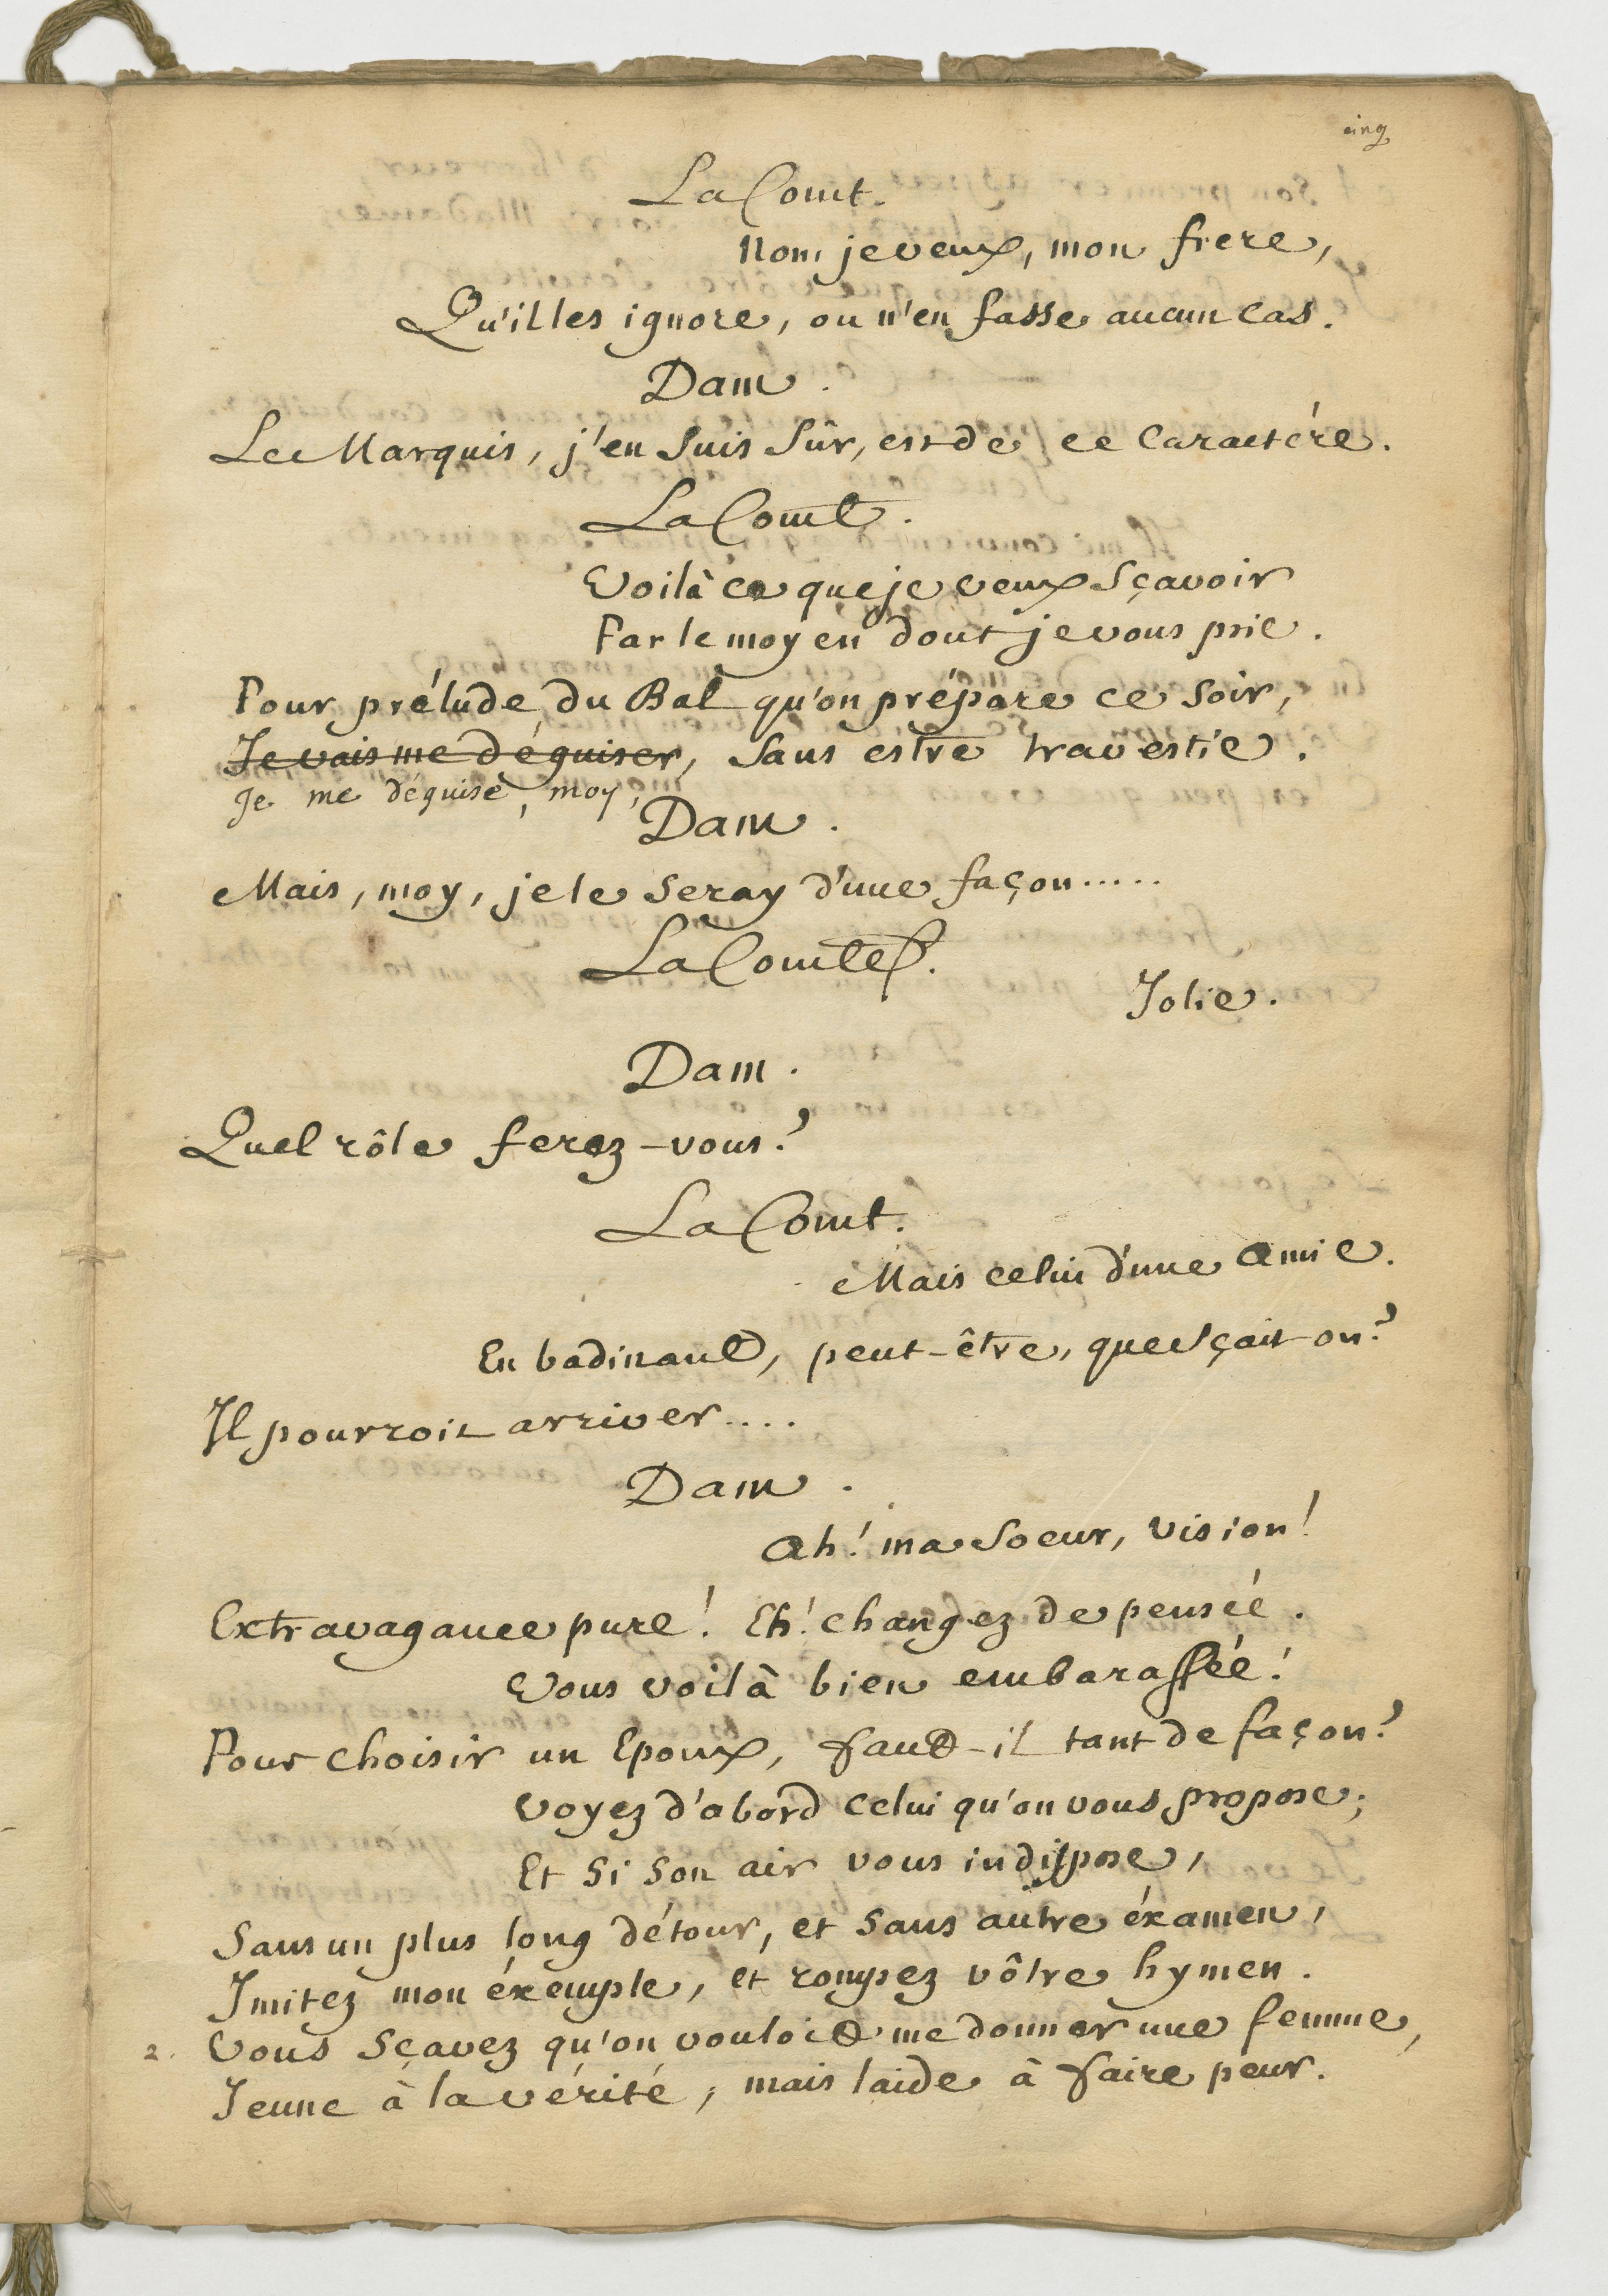 cinq
La Comt.
Non, je veux, mon frere,
Qu'il les ignore, ou n'en fasse aucun cas.
Dam.
Le Marquis, j'en suis sûr, est de ce Caractére.
La Comt.
Voilà ce que je veux sçavoir
Par le moyen dont je vous prie.
Pour prélude du Bal qu'on prépare ce soir,
Je vais me déguiser, sans estre travestie.
Je me déguise, moy,
Dam.
Mais, moy, je le seray d'une façon.....
La Comtes.
Jolie.
Dam.
Quel rôle ferez-vous?
La Comt.
Mais celui d'une Amie.
En badinant, peut-être, que sçait-on?
Il pourroit arriver....
Dam.
Ah! ma soeur, vision!
Extravagance pure! Eh! changez de pensée.
Vous voilà bien embarassée!
Pour choisir un Epoux, faut-il tant de façon?
Voyez d'abord celui qu'on vous propose;
Et si son air vous indispose,
Sans un plus long détour, et sans autre éxamen,
Imitez mon éxemple, et rompez vôtre hymen.
2. Vous sçavez qu'on vouloit me donner une femme,
Jeune à la vérité, mais laide à faire peur.